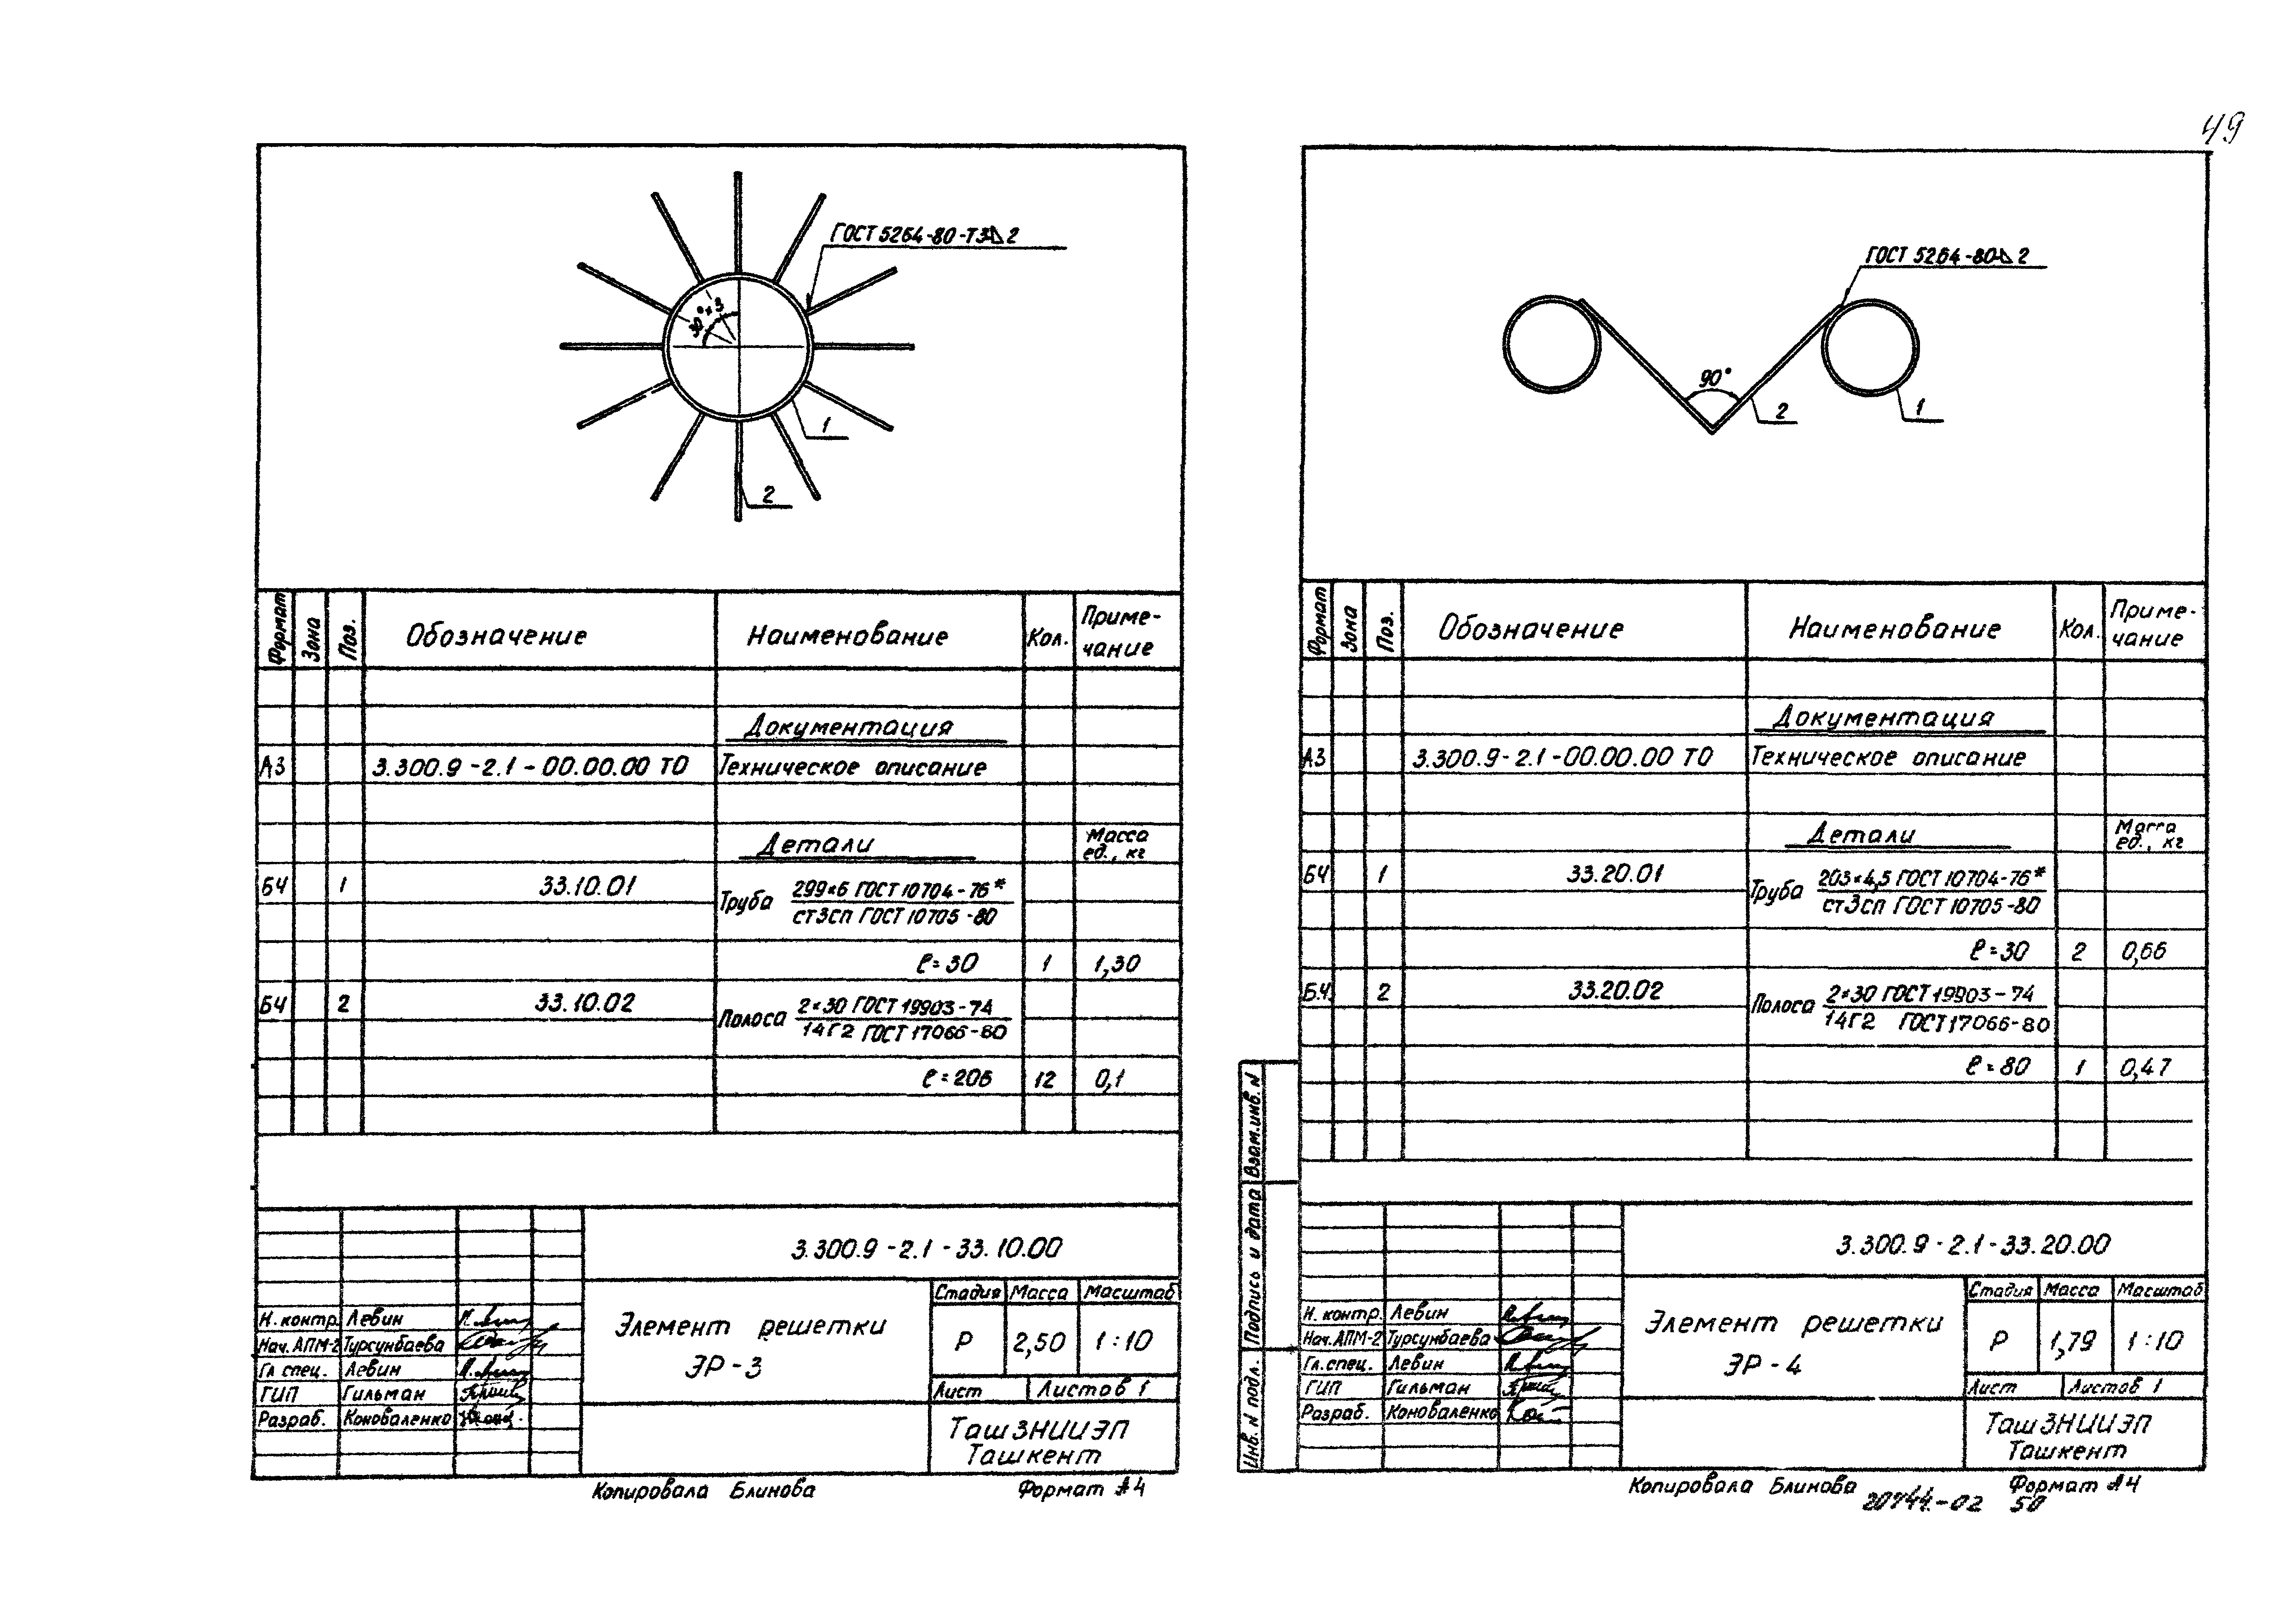 49
ГОСТ 5264-80-Т3-⊿2
30°×3
1
2
Формат Зона Поз. Обозначение Наименование Кол. Приме-
чание
Документация
А3 3.300.9-2.1-00.00.00 ТО Техническое описание
Детали Масса
ед., кг
БЧ 1 33.10.01 Труба 299×6 ГОСТ 10704-76*
ст3сп ГОСТ 10705-80
ℓ=30 1 1,30
БЧ 2 33.10.02 Полоса 2×30 ГОСТ 19903-74
14Г2 ГОСТ 17066-80
ℓ=206 12 0,1
3.300.9-2.1-33.10.00
Элемент решетки
ЭР-3
Стадия Масса Масштаб
Р 2,50 1:10
Лист Листов 1
Н. контр. Левин
Нач. АПМ-2 Турсунбаева
Гл спец. Левин
ГИП Гильман
Разраб. Коноваленко
ТашЗНИИЭП
Ташкент
Копировала Блинова Формат А4
ГОСТ 5264-80-⊿2
90°
2
1
Формат Зона Поз. Обозначение Наименование Кол. Приме-
чание
Документация
А3 3.300.9-2.1-00.00.00 ТО Техническое описание
Детали Масса
ед., кг
БЧ 1 33.20.01 Труба 203×4,5 ГОСТ 10704-76*
ст3сп ГОСТ 10705-80
ℓ=30 2 0,66
Б.Ч. 2 33.20.02 Полоса 2×30 ГОСТ 19903-74
14Г2 ГОСТ 17066-80
ℓ=80 1 0,47
Инв. N подл. Подпись и дата Взам.инв. N
3.300.9-2.1-33.20.00
Элемент решетки
ЭР-4
Стадия Масса Масштаб
Р 1,79 1:10
Лист Листов 1
Н. контр. Левин
Нач. АПМ-2 Турсунбаева
Гл. спец. Левин
ГИП Гильман
Разраб. Коноваленко
ТашЗНИИЭП
Ташкент
Копировала Блинова Формат А4
20744-02 50